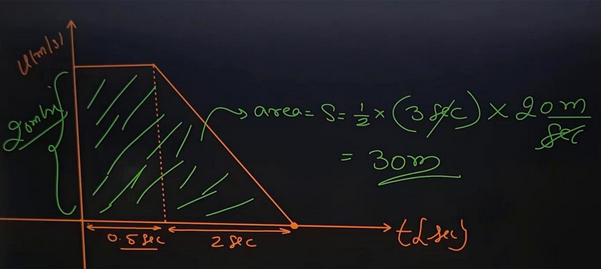 u(m/s)
20m/s
area = S = 1/2 × (3 sec) × 20 m/sec
= 30m
0.5 sec
2 sec
t(sec)